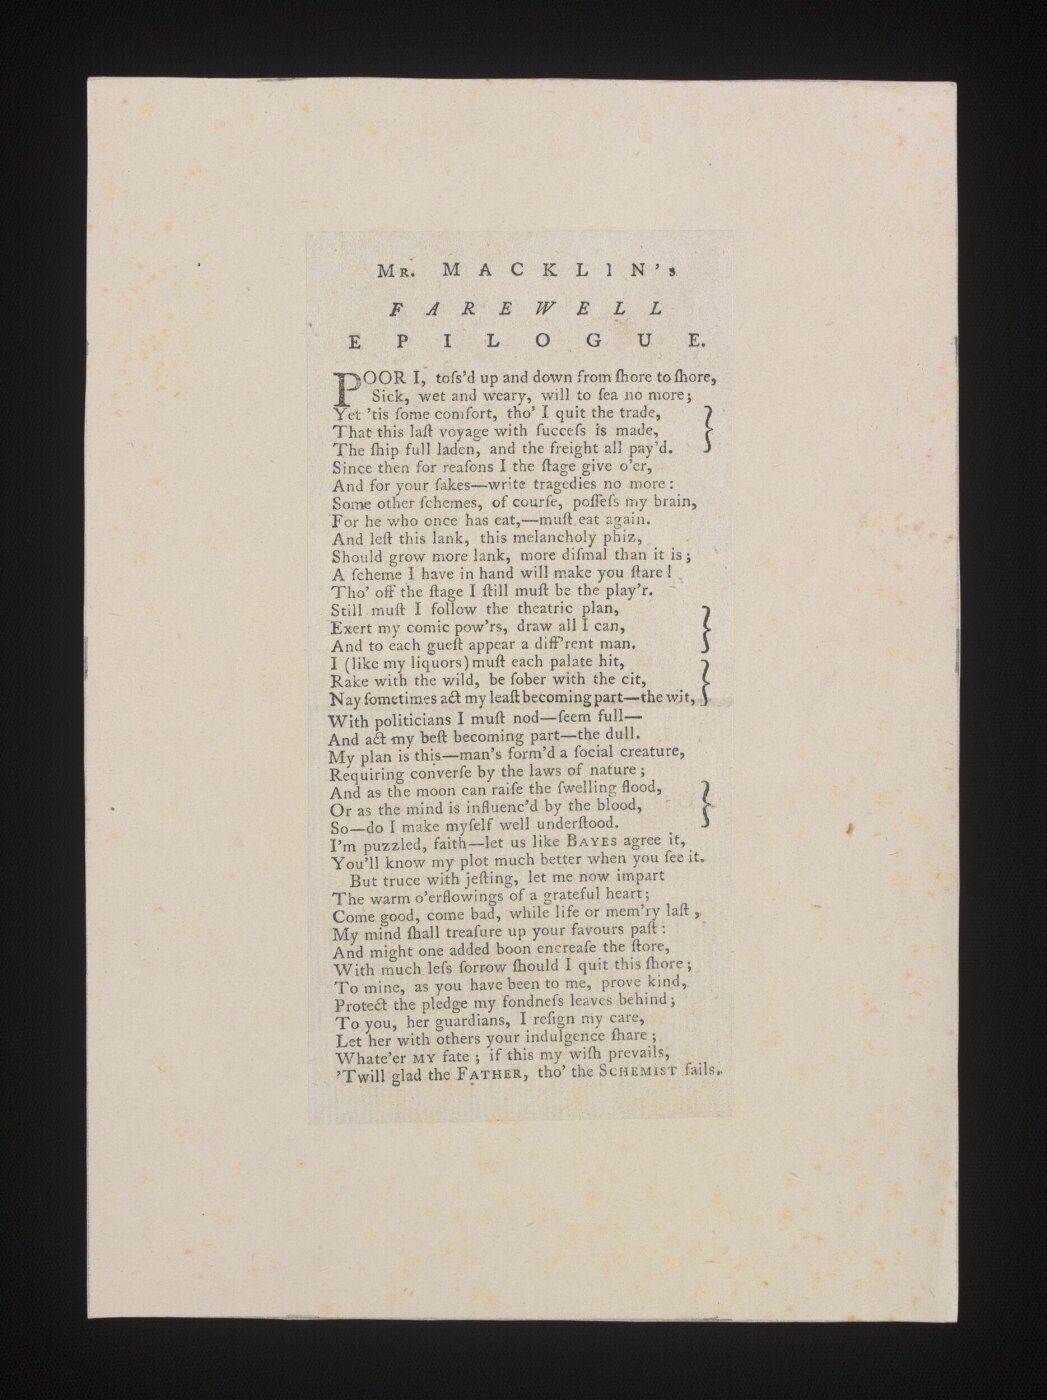 Mr. MACKLIN's
FAREWELL
EPILOGUE.
POOR I, toſs'd up and down from ſhore to ſhore,
Sick, wet and weary, will to ſea no more;
Yet 'tis ſome comfort, tho' I quit the trade,
That this laſt voyage with ſucceſs is made,
The ſhip full laden, and the freight all pay'd.
Since then for reaſons I the ſtage give o'er,
And for your ſakes—write tragedies no more:
Some other ſchemes, of courſe, poſſeſs my brain,
For he who once has eat,—muſt eat again.
And leſt this lank, this melancholy phiz,
Should grow more lank, more diſmal than it is;
A ſcheme I have in hand will make you ſtare!
Tho' off the ſtage I ſtill muſt be the play'r.
Still muſt I follow the theatric plan,
Exert my comic pow'rs, draw all I can,
And to each gueſt appear a diff'rent man.
I (like my liquors) muſt each palate hit,
Rake with the wild, be ſober with the cit,
Nay ſometimes act my leaſt becoming part—the wit,
With politicians I muſt nod—ſeem full—
And act my beſt becoming part—the dull.
My plan is this—man's form'd a ſocial creature,
Requiring converſe by the laws of nature;
And as the moon can raiſe the ſwelling flood,
Or as the mind is influenc'd by the blood,
So—do I make myſelf well underſtood.
I'm puzzled, faith—let us like BAYES agree it,
You'll know my plot much better when you ſee it.
But truce with jeſting, let me now impart
The warm o'erflowings of a grateful heart;
Come good, come bad, while life or mem'ry laſt,
My mind ſhall treaſure up your favours paſt:
And might one added boon encreaſe the ſtore,
With much leſs ſorrow ſhould I quit this ſhore;
To mine, as you have been to me, prove kind,
Protect the pledge my fondneſs leaves behind;
To you, her guardians, I reſign my care,
Let her with others your indulgence ſhare;
Whate'er MY fate; if this my wiſh prevails,
'Twill glad the FATHER, tho' the SCHEMIST fails.